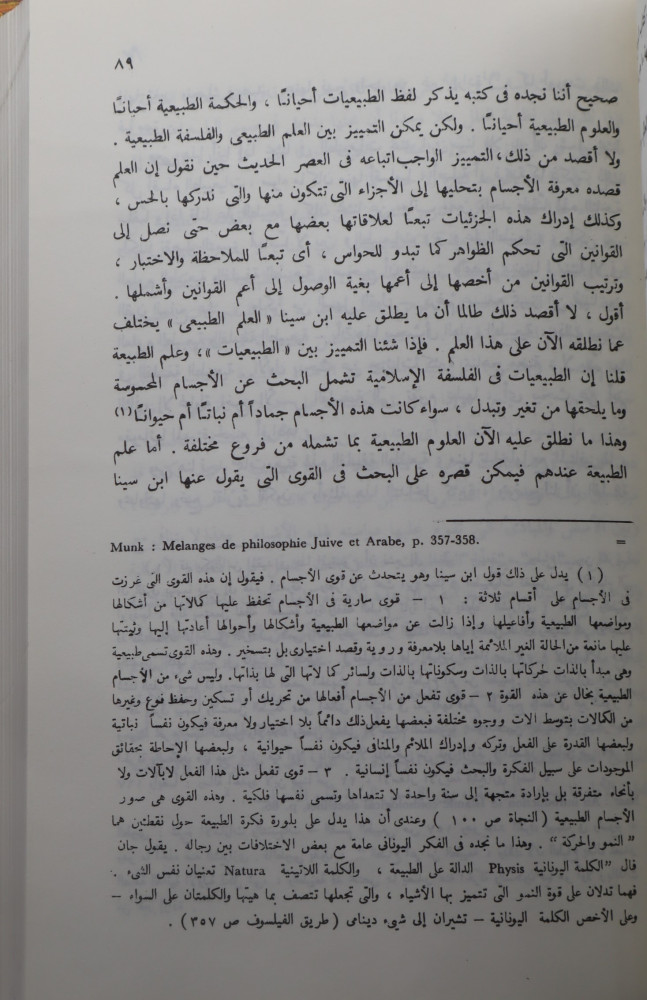 ٨٩
صحيح أننا نجده فى كتبه يذكر لفظ الطبيعيات أحياناً ، والحكمة الطبيعية أحياناً
والعلوم الطبيعية أحياناً . ولكن يمكن التمييز بين العلم الطبيعى والفلسفة الطبيعية .
ولا أقصد من ذلك، التمييز الواجب اتباعه فى العصر الحديث حين نقول إن العلم
قصده معرفة الأجسام بتحليها إلى الأجزاء التى تتكون منها والتى ندركها بالحس ،
وكذلك إدراك هذه الجزئيات تبعاً لعلاقاتها بعضها مع بعض حتى نصل إلى
القوانين التى تحكم الظواهر كما تبدو للحواس ، أى تبعاً للملاحظة والاختبار ،
وترتيب القوانين من أخصها إلى أعمها بغية الوصول إلى أعم القوانين وأشملها .
أقول ، لا أقصد ذلك طالما أن ما يطلق عليه ابن سينا « العلم الطبيعى » يختلف
عما نطلقه الآن على هذا العلم . فإذا شئنا التمييز بين « الطبيعيات »، وعلم الطبيعة
قلنا إن الطبيعيات فى الفلسفة الإسلامية تشمل البحث عن الأجسام المحسوسة
وما يلحقها من تغير وتبدل ، سواء كانت هذه الأجسام جماداً أم نباتاً أم حيواناً (١)
وهذا ما نطلق عليه الآن العلوم الطبيعية بما تشمله من فروع مختلفة . أما علم
الطبيعة عندهم فيمكن قصره على البحث فى القوى التى يقول عنها ابن سينا
= Munk : Melanges de philosophie Juive et Arabe, p. 357-358.
(١) يدل على ذلك قول ابن سينا وهو يتحدث عن قوى الأجسام . فيقول إن هذه القوى التى غرزت
فى الأجسام على أقسام ثلاثة : ١ – قوى سارية فى الأجسام تحفظ عليها كمالاتها من أشكالها
ومواضعها الطبيعية وأفاعيلها وإذا زالت عن مواضعها الطبيعية وأشكالها وأحوالها أعادتها إليها وثبتتها
عليها مانعة من الحالة الغير الملائمة إياها بلا معرفة وروية وقصد اختيارى بل بتسخير . وهذه القوى تسمى طبيعية
وهى مبدأ بالذات لحركاتها بالذات وسكوناتها بالذات ولسائر كمالاتها التى لها بذاتها. وليس شىء من الأجسام
الطبيعية بخال عن هذه القوة ٢ – قوى تفعل من الأجسام أفعالها من تحريك أو تسكين وحفظ فوع وغيرها
من الكمالات بتوسط الات ووجوه مختلفة فبعضها يفعل ذلك دائماً بلا اختيار ولا معرفة فيكون نفساً نباتية
ولبعضها القدرة على الفعل وتركه وإدراك الملائم والمنافى فيكون نفساً حيوانية ، ولبعضها الإحاطة بحقائق
الموجودات على سبيل الفكرة والبحث فيكون نفساً إنسانية . ٣ – قوى تفعل مثل هذا الفعل لابآلات ولا
بأنحاء متفرقة بل بإرادة متجهة إلى سنة واحدة لا تتعداها وتسمى نفسها فلكية . وهذه القوى هى صور
الأجسام الطبيعية (النجاة ص ١٠٠ ) وعندى أن هذا يدل على بلورة فكرة الطبيعة حول نقطتين هما
" النمو والحركة " . وهذا ما نجده فى الفكر اليونانى عامة مع بعض الاختلافات بين رجاله . يقول جان
قال "الكلمة اليونانية Physis الدالة على الطبيعة ، والكلمة اللاتينية Natura تعنيان نفس الشىء .
فهما تدلان على قوة النمو التى تتميز بها الأشياء ، والتى تجعلها تتصف بما هيتها والكلمتان على السواء –
وعلى الأخص الكلمة اليونانية – تشيران إلى شىء دينامى (طريق الفيلسوف ص ٣٥٧) .